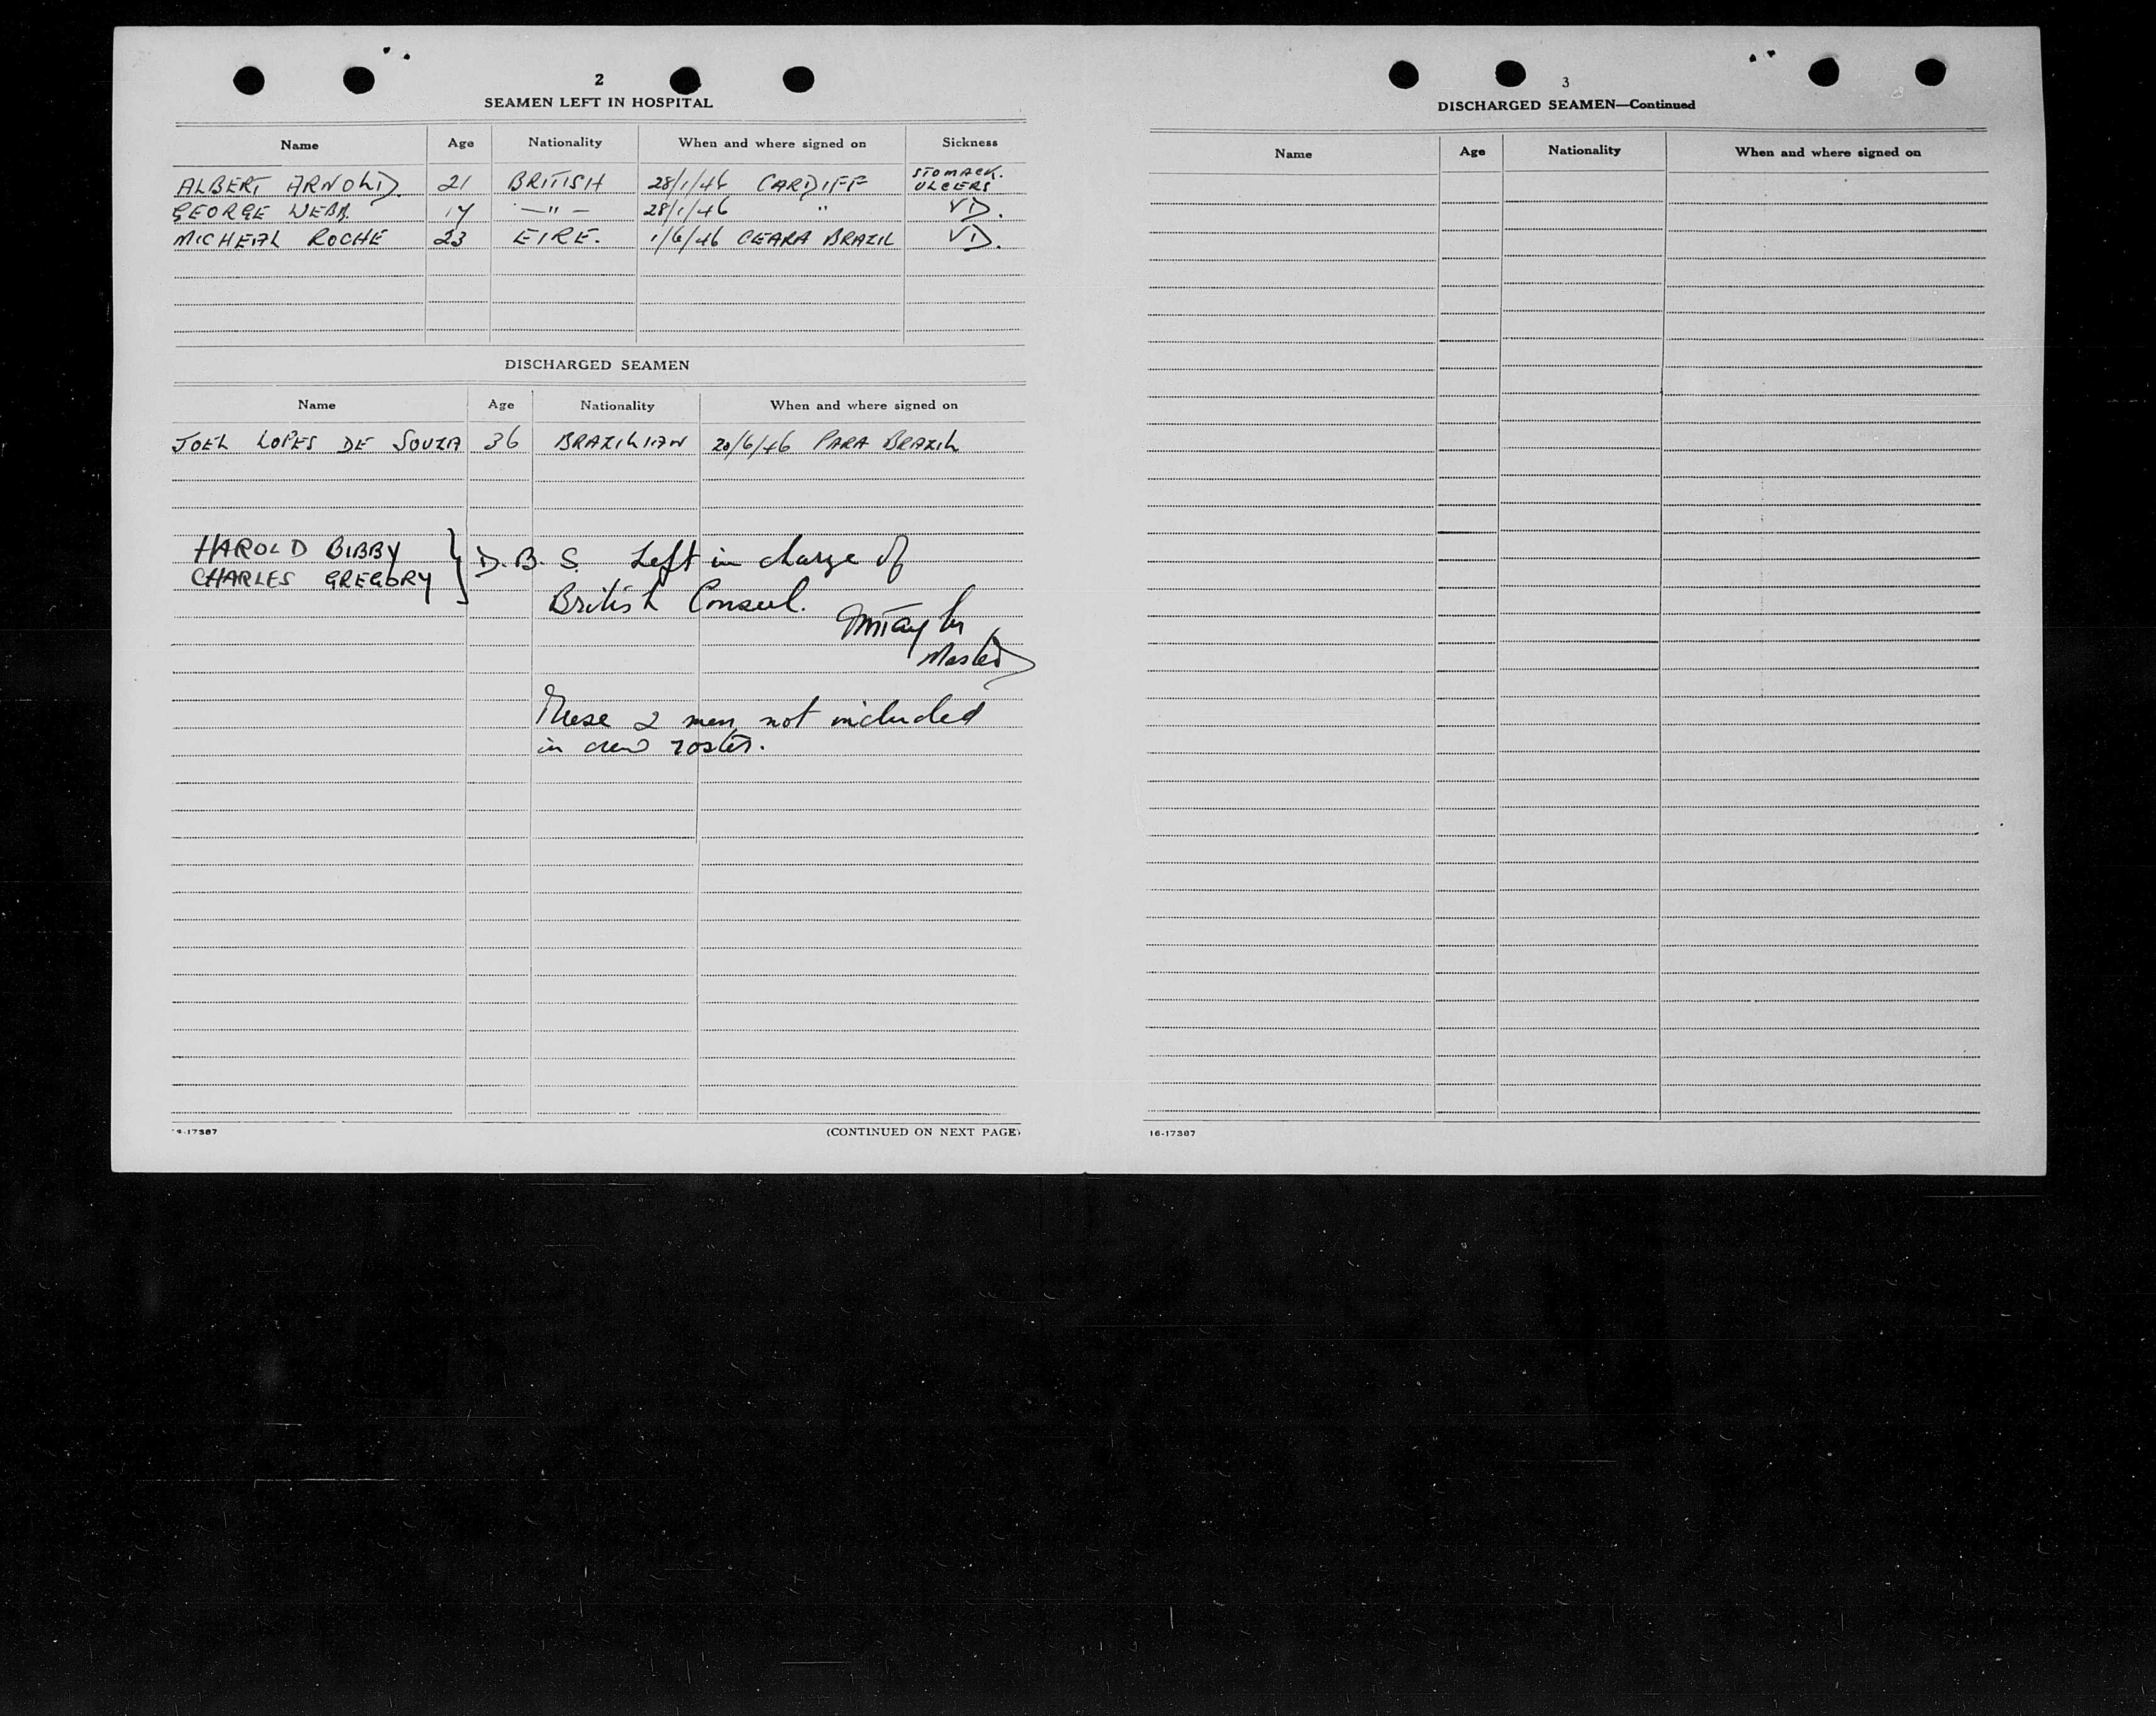 2
SEAMEN LEFT IN HOSPITAL
Name Age Nationality When and where signed on Sickness
ALBERT ARNOLD. 21 BRITISH 28/1/46 CARDIFF STOMACK. ULCERS
GEORGE WEBB. 17 —"— 28/1/46 " VD.
MICHEAL ROCHE 23 EIRE. 1/6/46 CEARA BRAZIL VD.
DISCHARGED SEAMEN
Name Age Nationality When and where signed on
JOEL LOPES DE SOUZA 36 BRAZILIAN 20/6/46 PARA BRAZIL
HAROLD BIBBY
CHARLES GREGORY } D.B.S. Left in charge of
British Consul.
Taylor
Master
These 2 men not included
in crew roster.
17387
(CONTINUED ON NEXT PAGE)
3
DISCHARGED SEAMEN—Continued
Name Age Nationality When and where signed on
16-17387